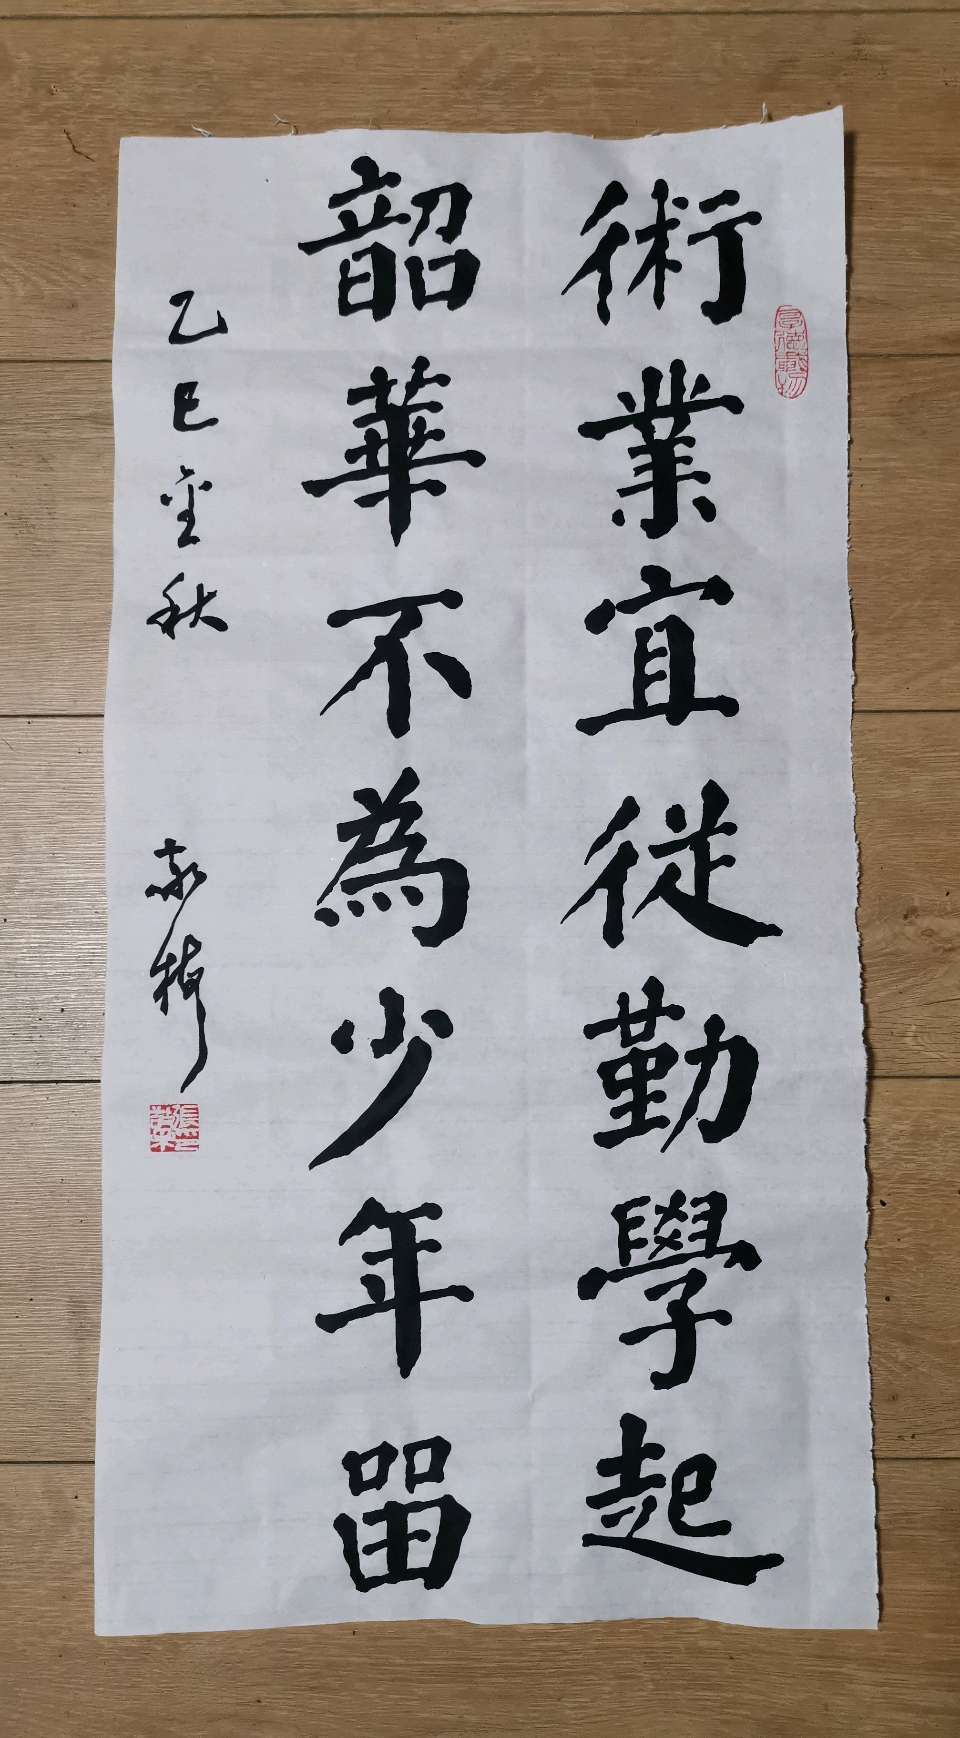 術業宜從勤學起
韶華不為少年留
乙巳金秋